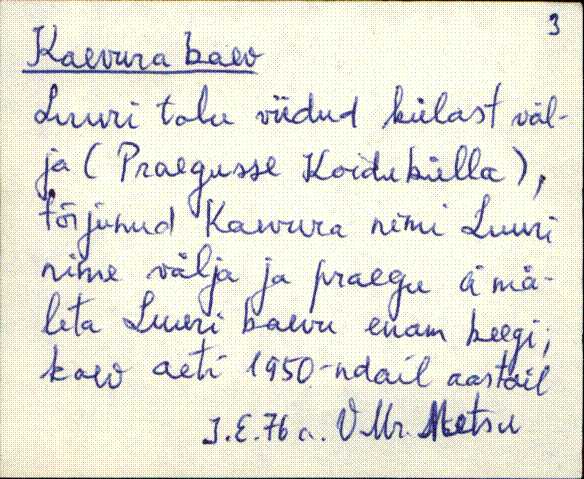 3
Kaevura kaev
Luuri talu viidud külast väl-
ja (Praegusse Koidukülla),
tõrjunud Kaevura nimi Luuri
nime välja ja praegu ei mä-
leta Luuri kaevu enam keegi;
kaev aeti 1950-ndail aastail
J.E. 76 a. V Mr. Metsu